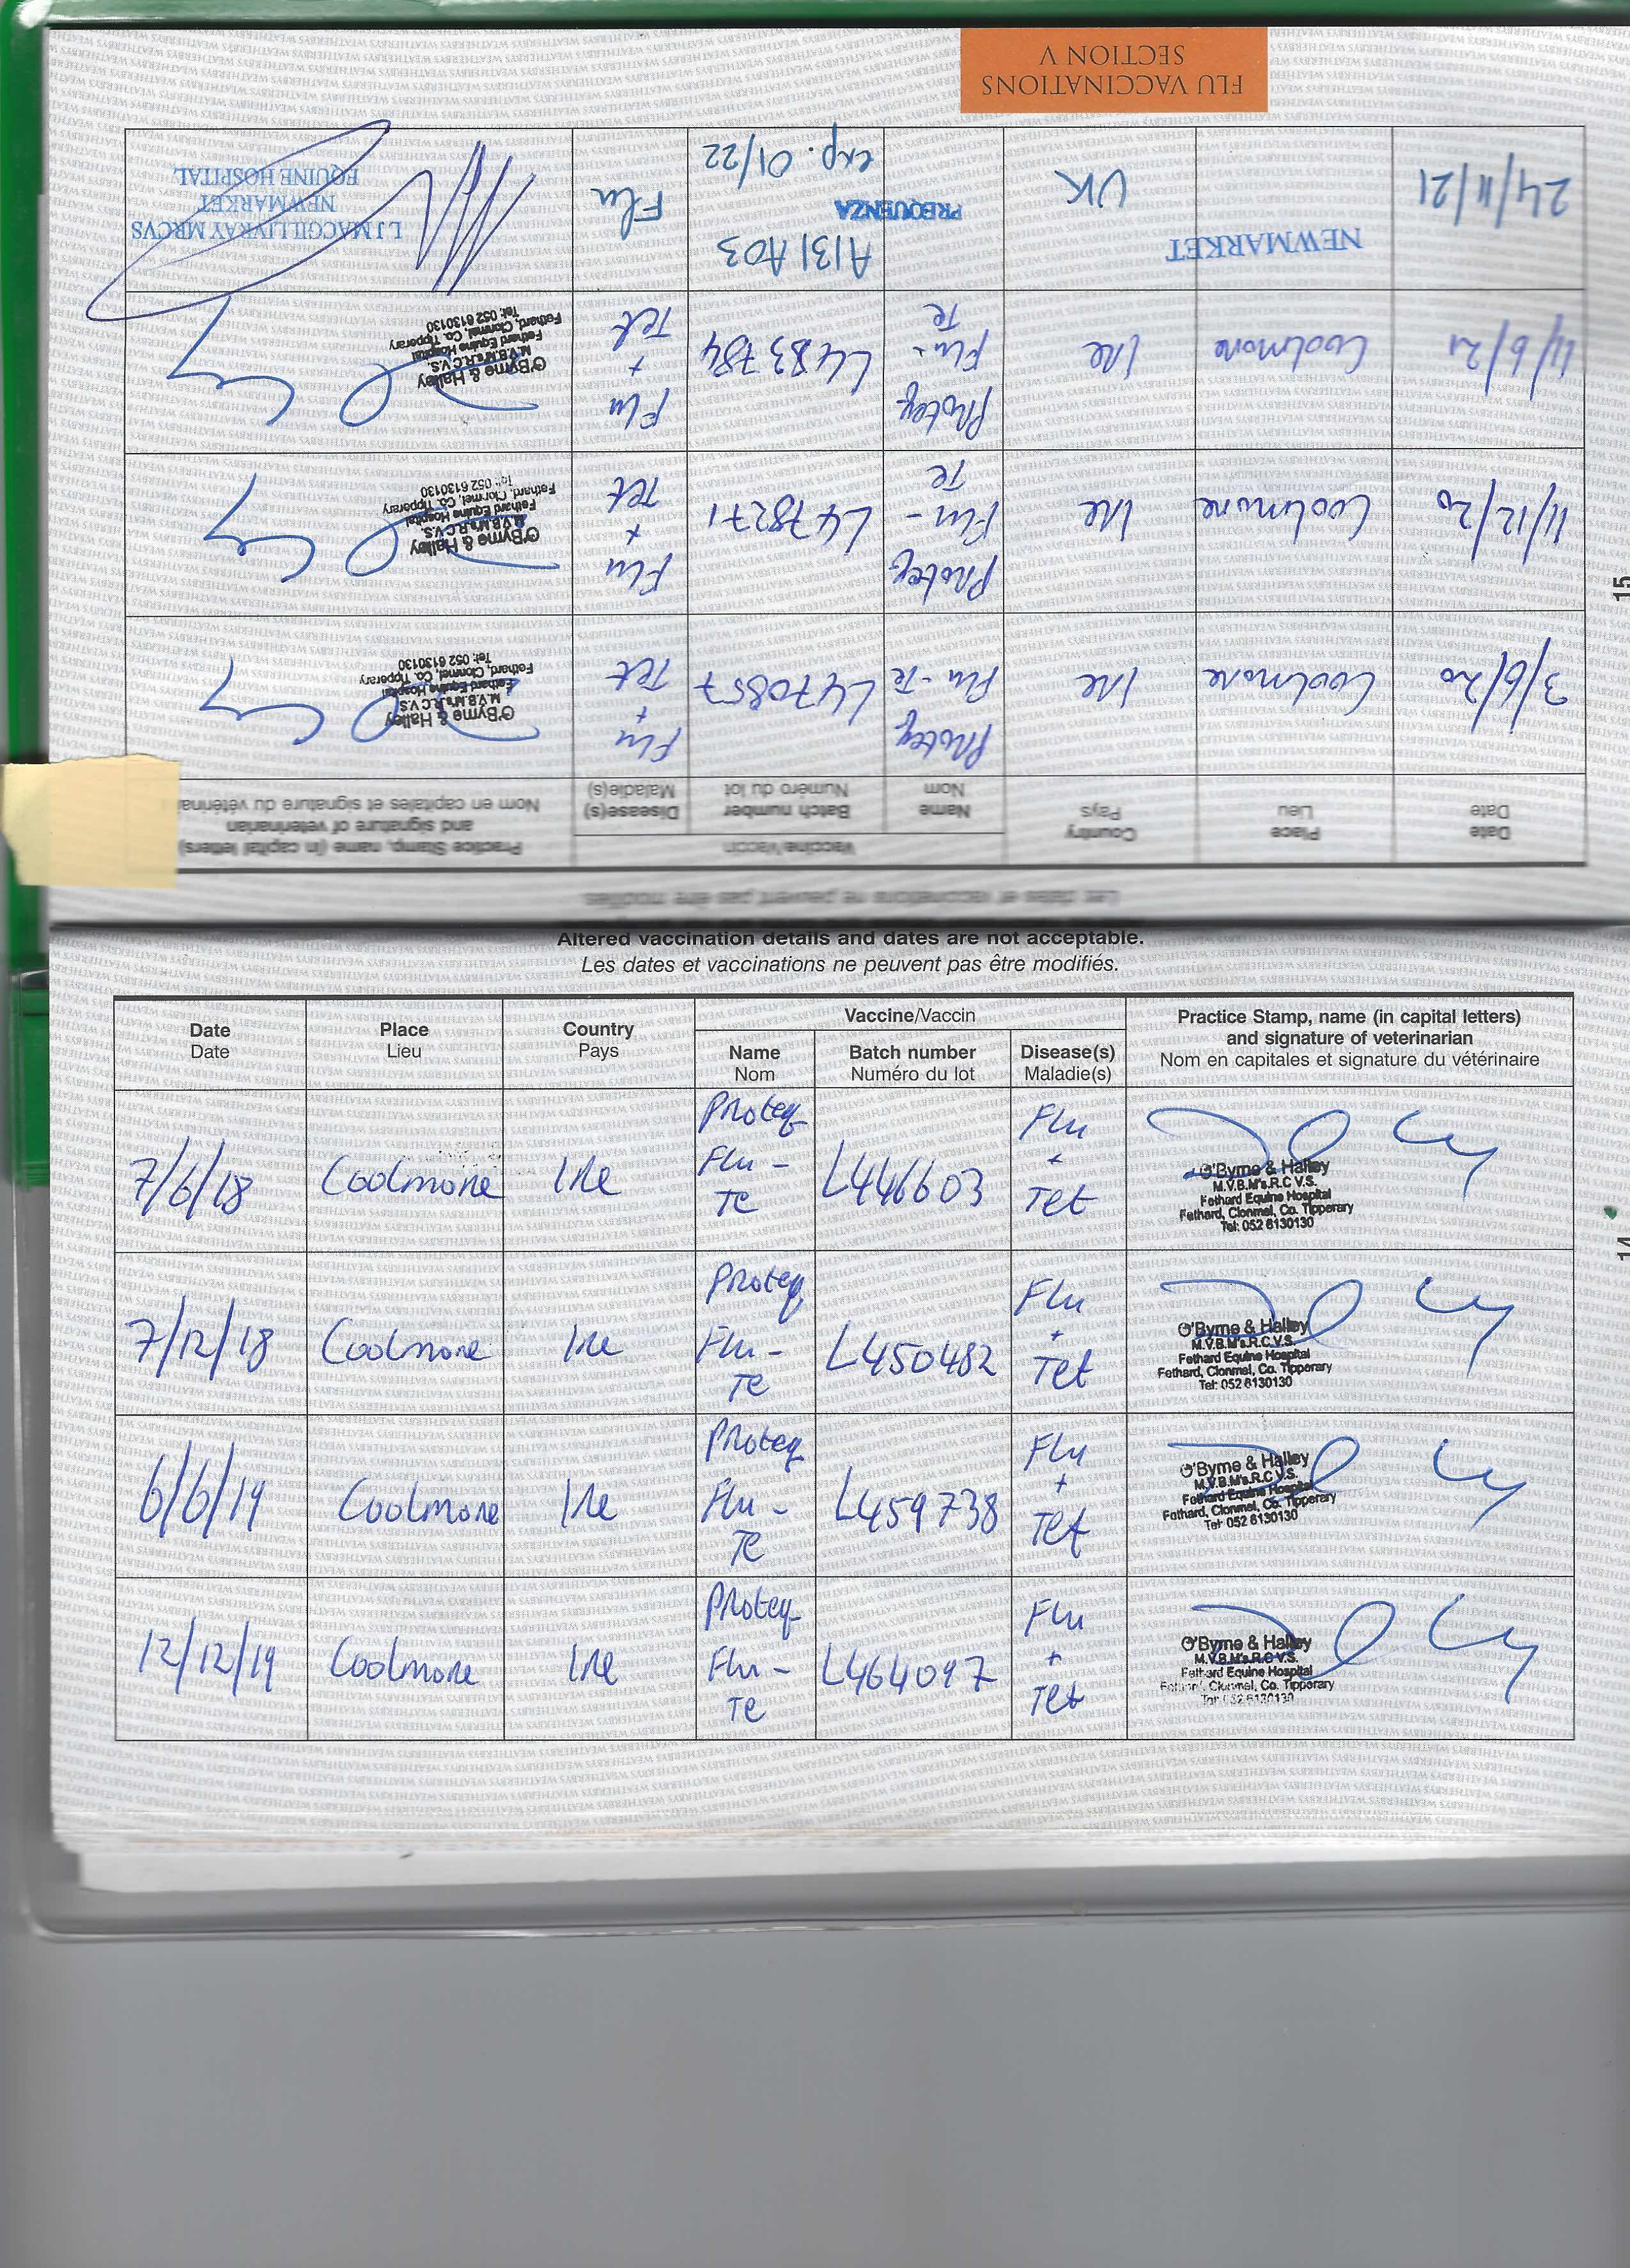 FLU VACCINATIONS
SECTION V
Les dates et vaccinations ne peuvent pas être modifiés.
Date
Date
Place
Lieu
Country
Pays
Vaccine/Vaccin
Name
Nom
Batch number
Numéro du lot
Disease(s)
Maladie(s)
Practice Stamp, name (in capital letters)
and signature of veterinarian
Nom en capitales et signature du vétérinai
3/6/20 Coolmore Ire Proteq Flu-Te L470857 Flu + Tet
O'Byrne & Halley
M.V.B.M's.R.C.V.S.
Fethard Equine Hospital
Fethard, Clonmel, Co. Tipperary
Tel: 052 6130130
11/12/20 Coolmore Ire Proteq Flu-Te L478271 Flu + Tet
O'Byrne & Halley
M.V.B.M's.R.C.V.S.
Fethard Equine Hospital
Fethard, Clonmel, Co. Tipperary
Tel: 052 6130130
Coolmore Ire Proteq Flu-Te L483784 Flu + Tet
O'Byrne & Halley
M.V.B.M's.R.C.V.S.
Fethard Equine Hospital
Fethard, Clonmel, Co. Tipperary
Tel: 052 6130130
24/11/21 NEWMARKET UK PREQUENZA A131A03 exp. 01/22 Flu
L J MACGILLIVRAY MRCVS
NEWMARKET
EQUINE HOSPITAL
15
Altered vaccination details and dates are not acceptable.
Les dates et vaccinations ne peuvent pas être modifiés.
Date
Date
Place
Lieu
Country
Pays
Vaccine/Vaccin
Name
Nom
Batch number
Numéro du lot
Disease(s)
Maladie(s)
Practice Stamp, name (in capital letters)
and signature of veterinarian
Nom en capitales et signature du vétérinaire
7/6/18 Coolmore Ire Proteq Flu-Te L446603 Flu + Tet
O'Byrne & Halley
M.V.B.M's.R.C.V.S.
Fethard Equine Hospital
Fethard, Clonmel, Co. Tipperary
Tel: 052 6130130
7/12/18 Coolmore Ire Proteq Flu-Te L450482 Flu + Tet
O'Byrne & Halley
M.V.B.M's.R.C.V.S.
Fethard Equine Hospital
Fethard, Clonmel, Co. Tipperary
Tel: 052 6130130
6/6/19 Coolmore Ire Proteq Flu-Te L459738 Flu + Tet
O'Byrne & Halley
M.V.B.M's.R.C.V.S.
Fethard Equine Hospital
Fethard, Clonmel, Co. Tipperary
Tel: 052 6130130
12/12/19 Coolmore Ire Proteq Flu-Te L464097 Flu + Tet
O'Byrne & Halley
M.V.B.M's.R.C.V.S.
Fethard Equine Hospital
Fethard, Clonmel, Co. Tipperary
Tel: 052 6130130
14